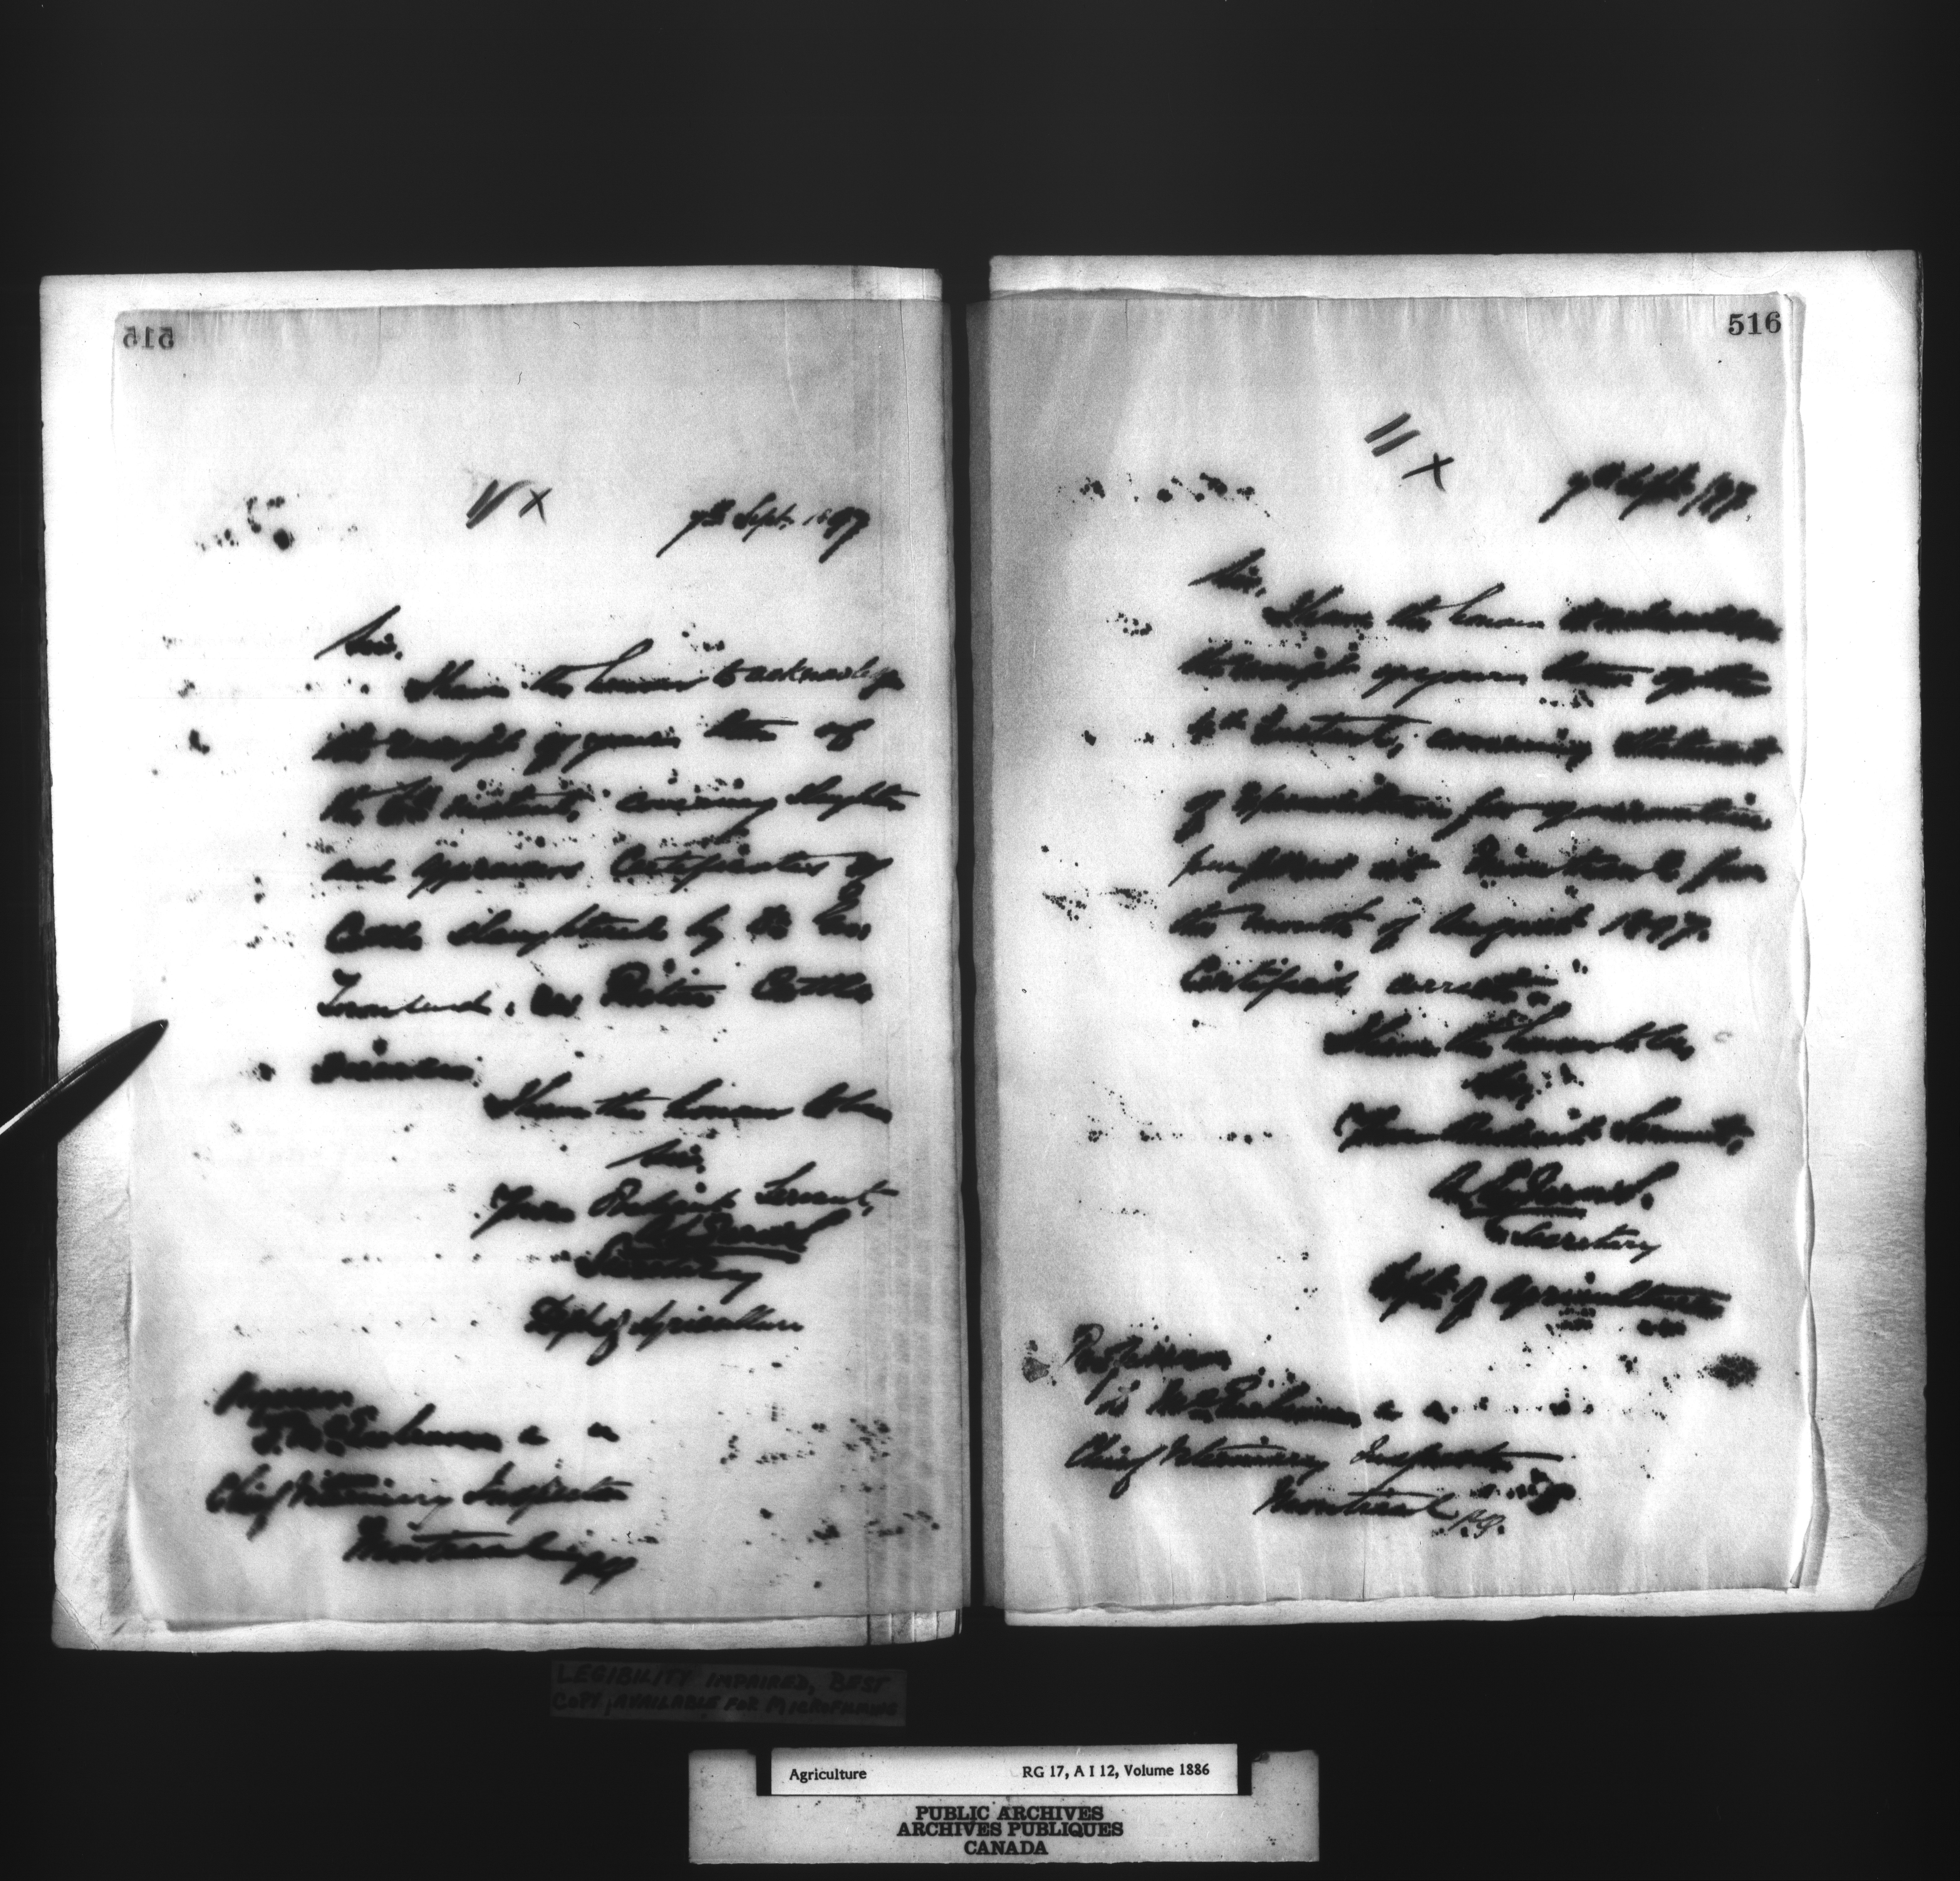 515
7th Sept. 1897
Sir,
I have the honour to acknowledge
the receipt of your letter of
the instant, covering slaughter
and appraisers Certificates of
Cattle slaughtered by the
Pictou Cattle
disease.
I have the honour to be
Sir,
Your Obedient Servant,
Secretary
Dept of Agriculture
Professor
D. McEachran
Chief Veterinary Inspector
Montreal P.Q.
516
11 x
7th Sept. 1897.
Sir,
I have the honour to acknowledge
the receipt of your letter of the
4th Instant, covering Statement
of Expenditure for quarantine
purposes at Montreal for
the month of August 1897.
Certified correct.
I have the honour to be
Sir,
Your Obedient Servant,
Secretary
Dept of Agriculture
Professor
D. McEachran
Chief Veterinary Inspector
Montreal P.Q.
LEGIBILITY IMPAIRED, BEST
COPY AVAILABLE FOR MICROFILMING
Agriculture RG 17, A I 12, Volume 1886
PUBLIC ARCHIVES
ARCHIVES PUBLIQUES
CANADA